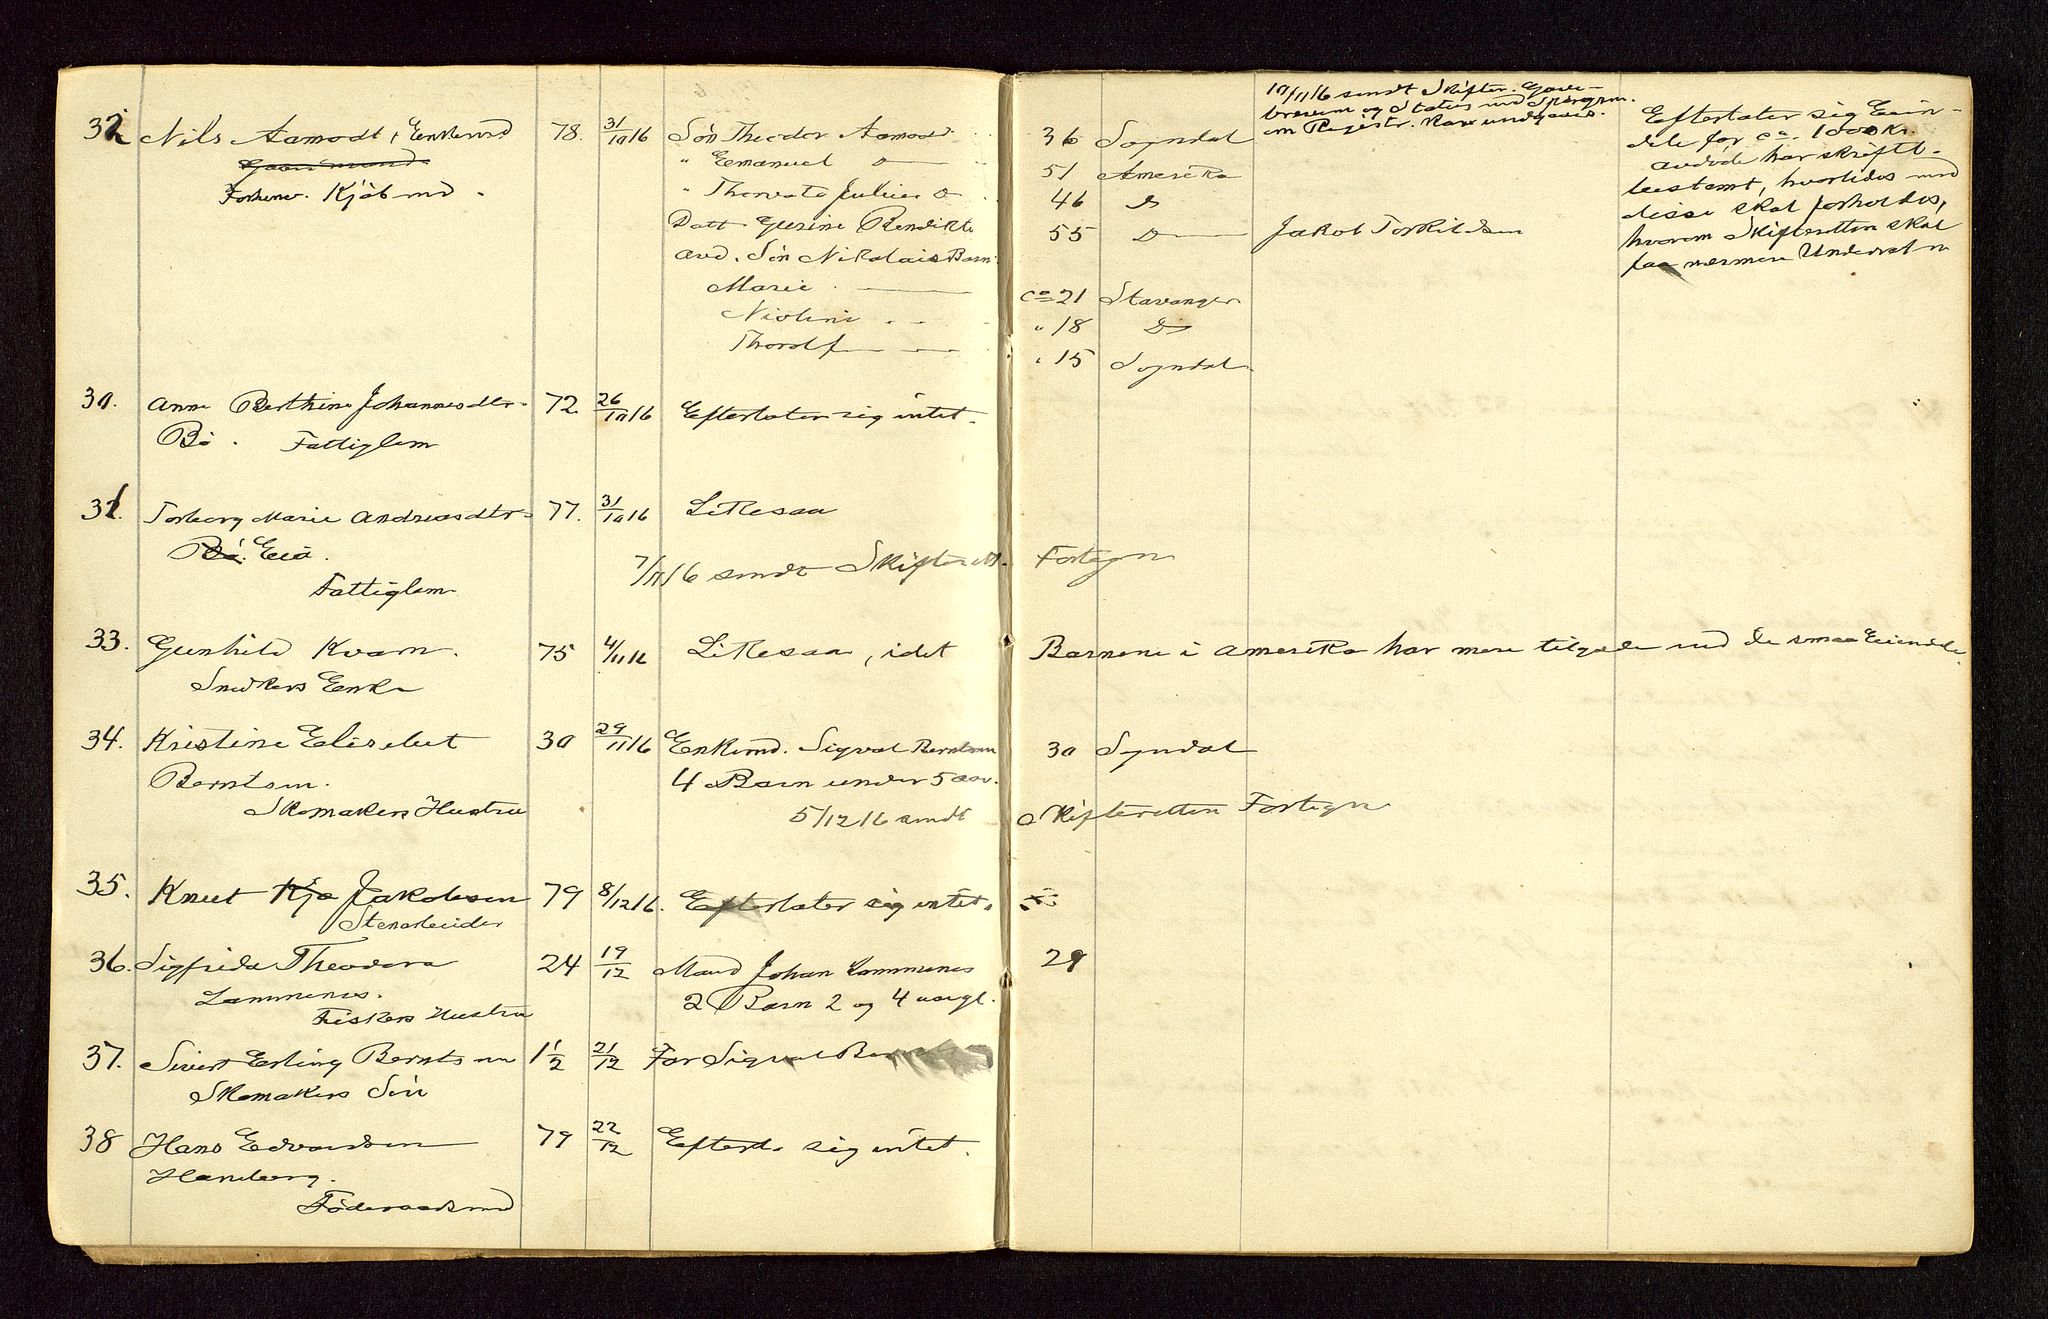 32 Nils Aamodt, Enkemd 78. 31/10 16 Søn Theodor Aamodt 36 Sogndal
Gaardmand " Emanuel Do 51 Amerika
Forhenv. Kjøbmd. " Thorvald Julius Do 46 Do
Datt Gurine Bendikte 55 Do Jakob Torkildsen
avd. Søn Nikolais Barn
Marie ca 21 Stavanger
" 18 Do
Thorolf " 15 Sogndal
10/11 16 sendt Skifter. Gave-
brevene og Status med Spørgsm.
om Registr. kan undgaaes.
Efterlater sig Eien-
dele for ca. 1000 Kr.
avdøde har skriftl.
testamt, hvorledes med
disse skal forholdes,
hvorom Skifteretten skal
faa nærmere Underretn
30. Anne Berthine Johannesdtr. 72. 26/10 16 Efterlater sig intet.
Bø. Fattiglem
31. Torborg Marie Andreasdtr. 77. 31/10 16 Likesaa
Bø. Eia.
7/11 16 sendt Skifterett. Fortegn
Fattiglem
33. Gunhild Kvam. 75 4/11 16 Likesaa, idet Barnene i Amerika har mere tilgode end de smaa Eiendele.
Snedkers Enke
34. Kristine Elisabet 30 29/11 16 Enkemd. Sigval Berntsen 30 Sogndal
Berntsen. 4 Barn under 5 aar.
Skomakers Hustru 5/12 16 sendt Skifteretten Fortegn
35. Knut Kja Jakobsen 79 8/12 16. Efterlater sig intet.
Stenarbeider
36. Sigfrida Theodora 24 19/12 Mand Johan Lammenes 29
Lammenes. 2 Barn 2 og 4 aargl.
Fiskers Hustru
37. Sivert Erling Berntsen 1 1/2 21/12 Far Sigval
Skomakers Søn
38 Hans Edvardsen 79 22/12 Efterl. sig intet.
Haneberg.
Føderaadsmd